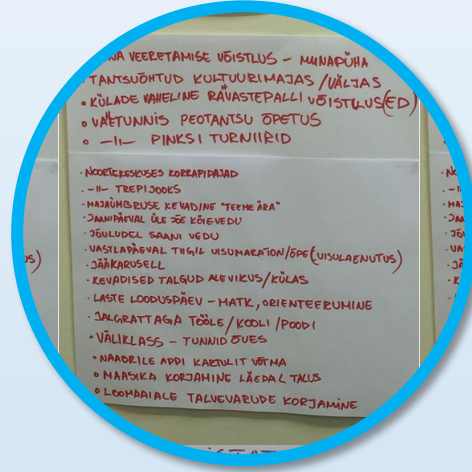 NA VEERETAMISE VÕISTLUS – MUNAPÜHA
TANTSUÕHTUD KULTUURIMAJAS / VÄLJAS
• KÜLADE VAHELINE RAVASTEPALLI VÕISTLUS(ED)
• VAHETUNNIS PEOTANTSU ÕPETUS
• –II– PINKSI TURNIIRID
• NOORTEKESKUSES KORRAPIDAJAD
• –II– TREPIJOOKS
• MAJAÜMBRUSE KEVADINE "TEEME ÄRA"
• JAANIPÄEVAL ÜLE JÕE KÖIEVEDU
• JÕULUDEL SAANI VEDU
• VASTLAPÄEVAL TIIGIL UISUMARATON/ÕPE (UISULAENUTUS)
• JÄÄKARUSELL
• KEVADISED TALGUD ALEVIKUS/KÜLAS
• LASTE LOODUSPÄEV – MATK, ORIENTEERUMINE
• JALGRATTAGA TÖÖLE / KOOLI / POODI
• VÄLIKLASS – TUNNID ÕUES
• NAABRILE APPI KARTULIT VÕTMA
• MAASIKA KORJAMINE LÄEDAL TALUS
• LOOMAAIALE TALVEVARUDE KORJAMINE